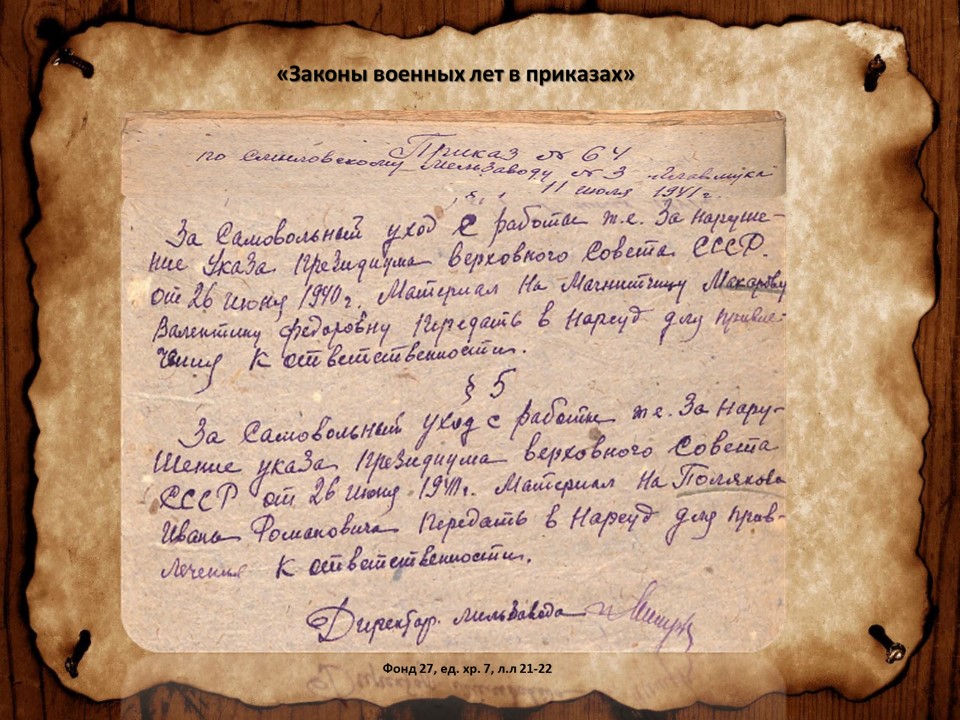 «Законы военных лет в приказах»
Приказ № 64
по Смиловскому мельзаводу № 3 Главмука
11 июля 1941 г.
За Самовольный уход с работы т.е. За наруше-
ние Указа Президиума верховного Совета СССР.
от 26 июня 1940 г. Материал На Магнитчицу Макарову
Валентину Федоровну Передать в Нарсуд для привле-
чения К ответственности.
§ 5
За Самовольный уход с работы т.е. За Нару-
шение указа Президиума верховного Совета
СССР от 26 июня 1941г. Материал На Полякова
Ивана Романовича Передать в Нарсуд для прив-
лечения К ответственности.
Директор мельзавода
Фонд 27, ед. хр. 7, л.л 21-22